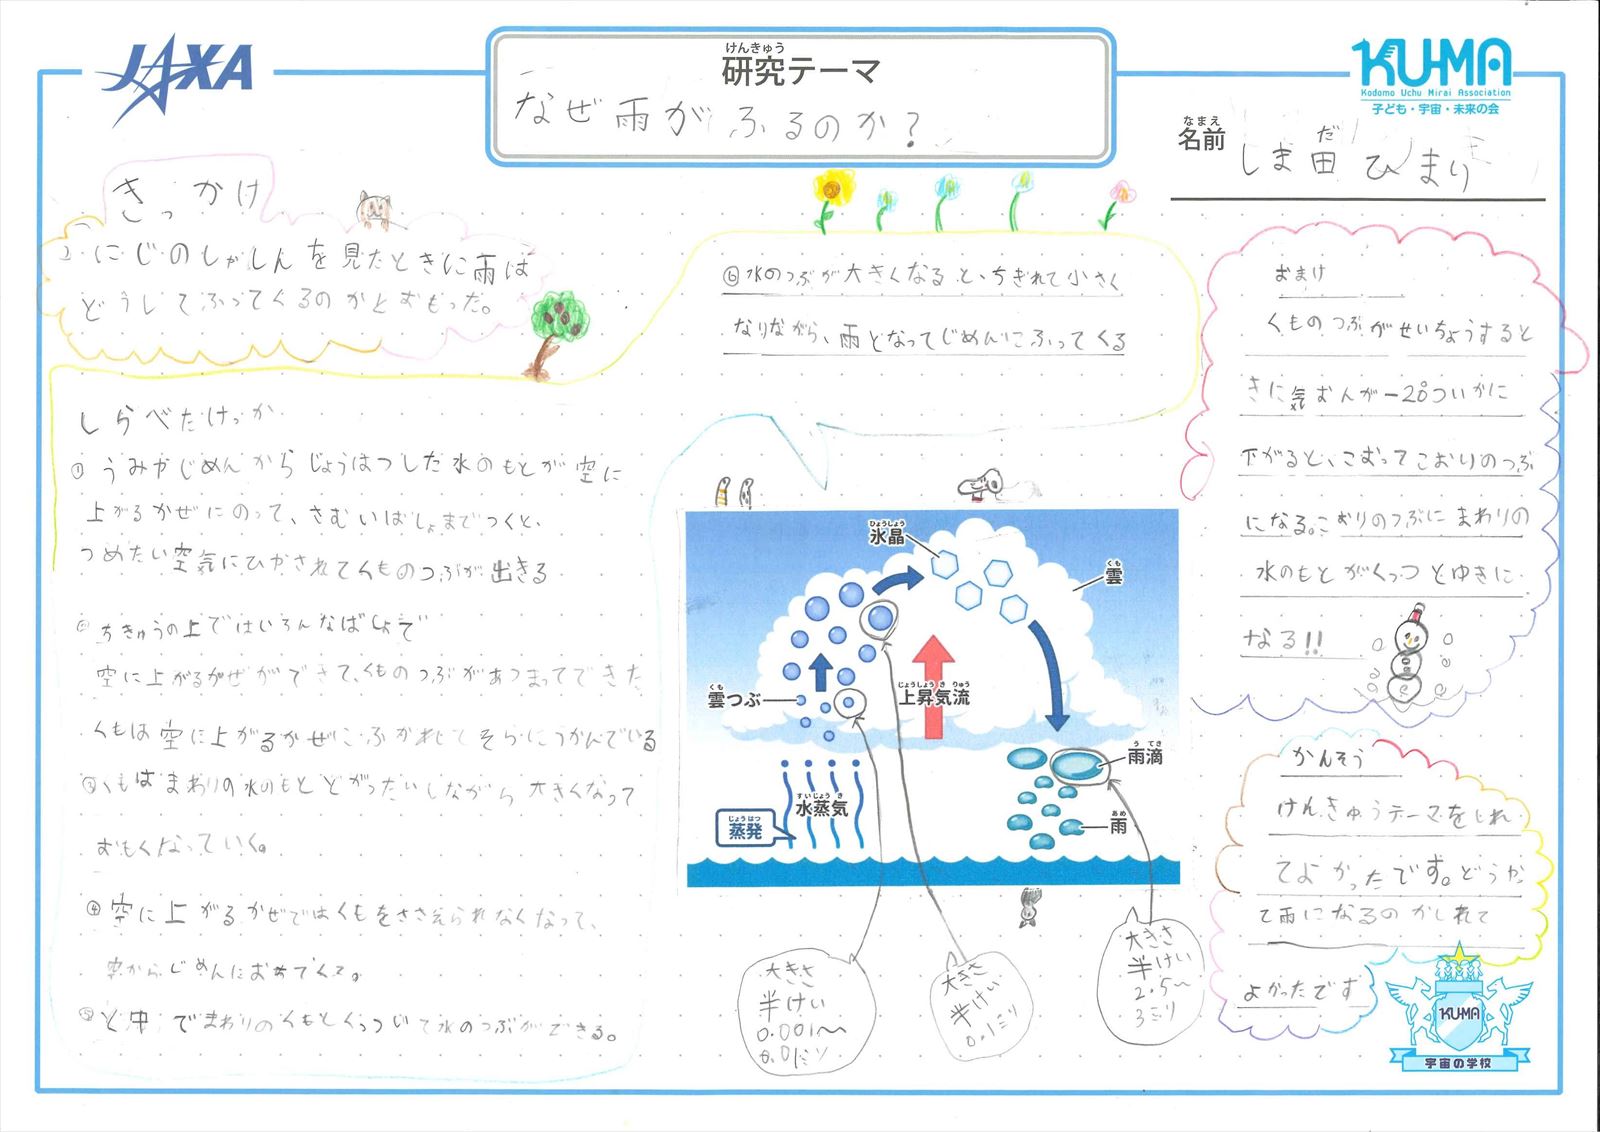 JAXA
けんきゅう
研究テーマ
なぜ雨がふるのか?
KU-MA
Kodomo Uchu Mirai Association
子ども・宇宙・未来の会
なまえ
名前
だ
しま田 ひまり
きっかけ
にじのしゃしんを見たときに雨は
どうしてふってくるのかとおもった。
しらべたけっか
① うみやじめんからじょうはつした水のもとが空に
上がるかぜにのって、さむいばしょまでつくと、
つめたい空気にひやされてくものつぶが出きる
② ちきゅうの上ではいろんなばしょで
空に上がるかぜができて、くものつぶがあつまってできた
くもは空に上がるかぜにふかれてそらにうかんでいる
③ くもはまわりの水のもととがったいしながら大きくなって
おもくなっていく。
④ 空に上がるかぜではくもをささえられなくなって、
空からじめんにおちてくる。
⑤ と中でまわりのくもとくっついて水のつぶができる。
⑥ 水のつぶが大きくなると、ちぎれて小さく
なりながら、雨となってじめんにふってくる
ひょうしょう
氷晶
くも
雲
くも
雲つぶ
じょうしょう き りゅう
上昇気流
う てき
雨滴
すいじょう き
水蒸気
じょうはつ
蒸発
あめ
雨
大きさ
半けい
0.001〜
大きさ
半けい
0.1ミリ
大きさ
半けい
2.5〜
3ミリ
おまけ
くものつぶがせいちょうすると
きに気おんが-20°Cいかに
下がると、こおってこおりのつぶ
になる。こおりのつぶにまわりの
水のもとがくっつくとゆきに
なる!!
かんそう
けんきゅうテーマをしれ
てよかったです。どうや
て雨になるのかしれて
よかったです
KU-MA
宇宙の学校